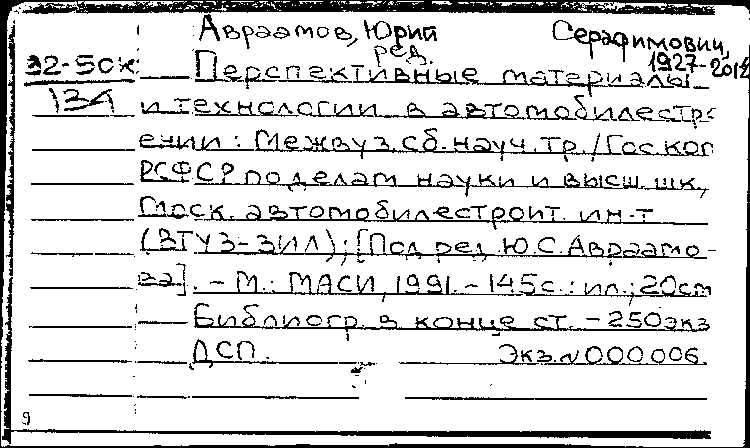 Авраамов, Юрий Серафимович,
ред. 1927-2012
32-50к Перспективные материалы
134 и технологии в автомобилестро
ении: Межвуз. сб. науч. тр. / Гос. ком
РСФСР по делам науки и высш. шк.,
Моск. автомобилестроит. ин-т
(ВТУЗ-ЗИЛ); [Под ред. Ю.С. Авраамо-
ва]. - М.: МАСИ, 1991. - 145с.: ил.; 20см
Библиогр. в конце ст. - 250экз
ДСП. Экз. N 000006.
9